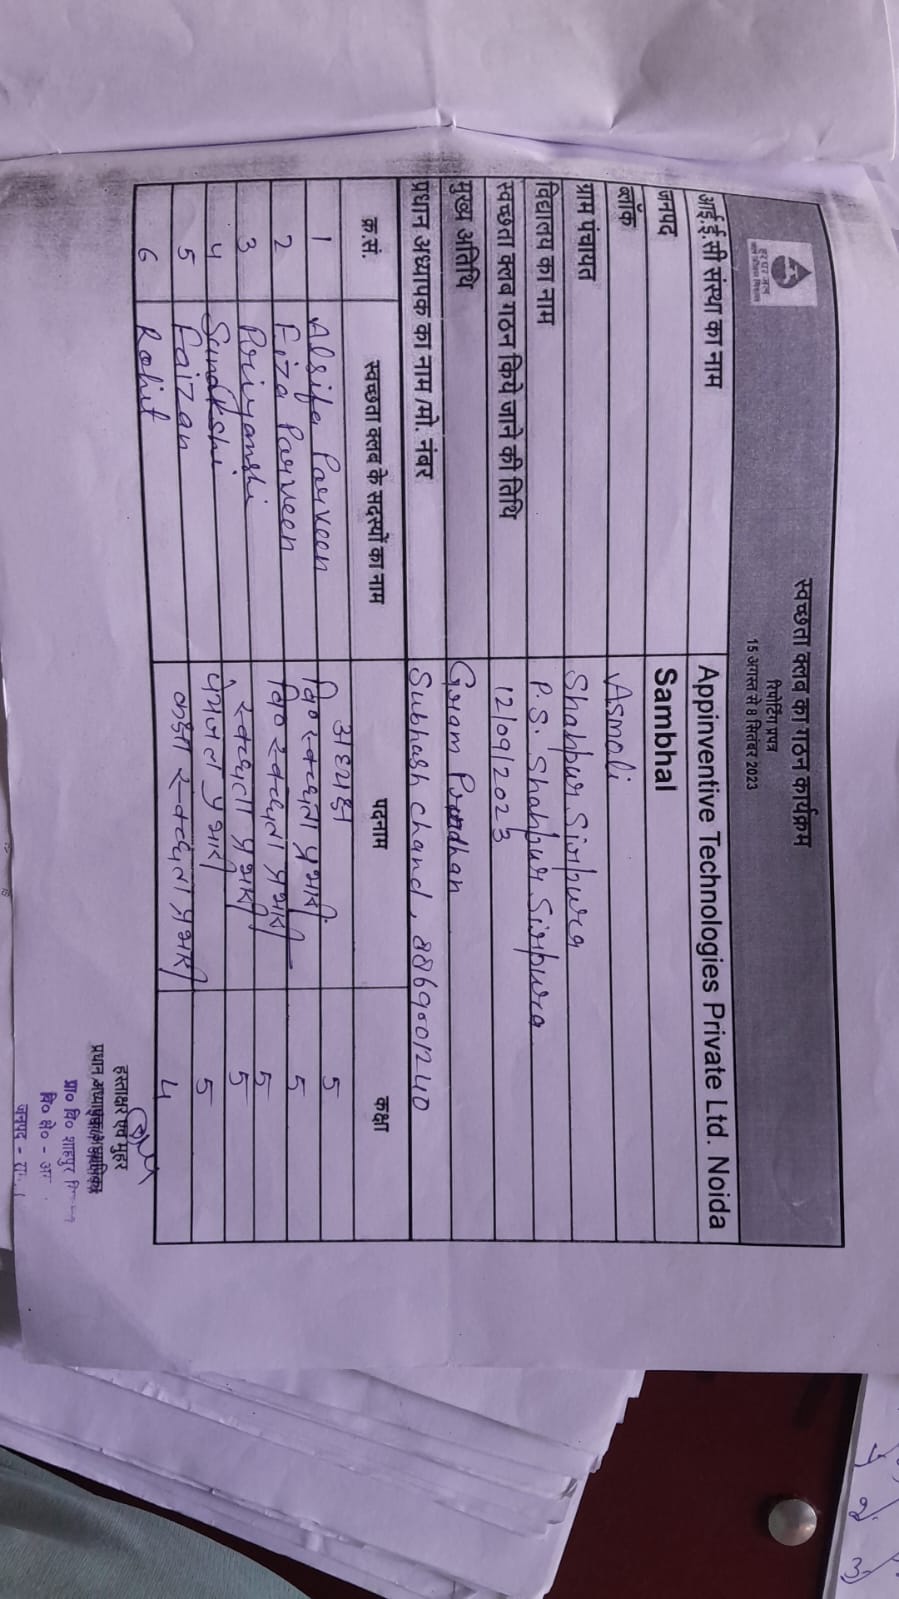 स्वच्छता क्लब का गठन कार्यक्रम
रिपोर्टिंग प्रपत्र
15 अगस्त से 8 सितंबर 2023
हर घर जल
जल जीवन मिशन
आई.ई.सी संस्था का नाम Appinventive Technologies Private Ltd. Noida
जनपद Sambhal
ब्लॉक Asmoli
ग्राम पंचायत Shahpur Sirpura
विद्यालय का नाम P.S. Shahpur Sirpura
स्वच्छता क्लब गठन किये जाने की तिथि 12/09/2023
मुख्य अतिथि Gram Pradhan
प्रधान अध्यापक का नाम/मो. नंबर Subhash chand, 8869001240
क्र.सं. स्वच्छता क्लब के सदस्यों का नाम पदनाम कक्षा
1 Alsifa Parveen अध्यक्ष 5
2 Fiza Parveen वि० स्वच्छता प्रभारी 5
3 Priyanshi वि० स्वच्छता प्रभारी 5
4 Sundkshi स्वच्छता प्रभारी 5
5 Faizan पेयजल प्रभारी 5
6 Rohit कक्षा स्वच्छता प्रभारी 4
हस्ताक्षर एवं मुहर
प्रधान अध्यापक/अध्यापिका
प्रा० वि० शाहपुर
वि० क्षे० -
जनपद -